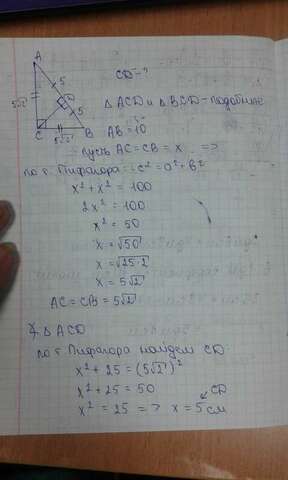 A
CD - ?
5
5√2
D
△ACD и △BCD - подобные
5
C
5√2
B
AB = 10
пусть AC = CB = x =>
по т. Пифагора: c² = a² + b²
x² + x² = 100
2x² = 100
x² = 50
x = √50
x = √25·2
x = 5√2
AC = CB = 5√2
△ACD
по т Пифагора найдем CD:
x² + 25 = (5√2)²
x² + 25 = 50
CD
x² = 25 => x = 5 см